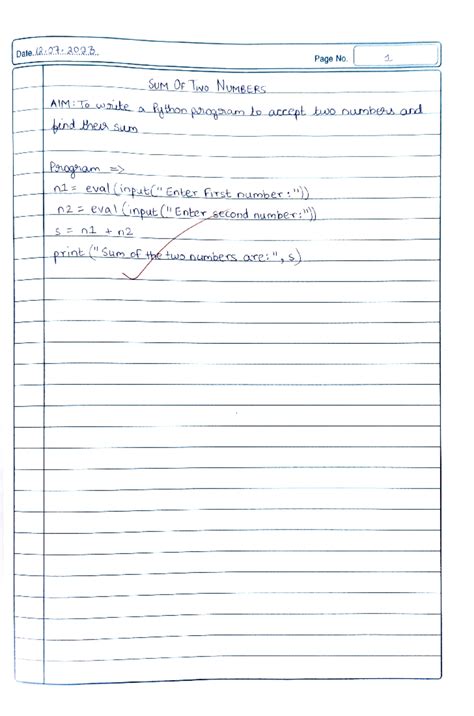 Date. 12.07.2023
Page No. 1
SUM OF TWO NUMBERS
AIM: To write a Python program to accept two numbers and
find their sum
Program =>
n1 = eval(input("Enter First number:"))
n2 = eval(input("Enter second number:"))
s = n1 + n2
print("Sum of the two numbers are:", s)